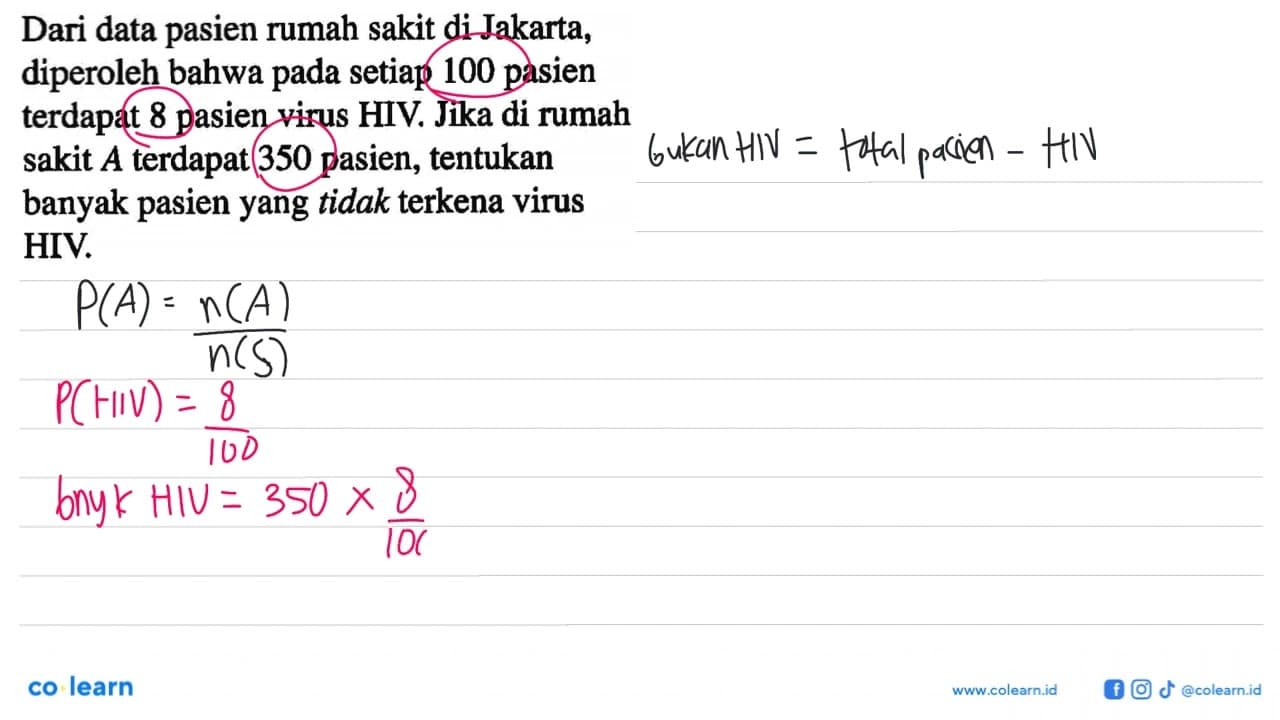 Dari data pasien rumah sakit di Jakarta,
diperoleh bahwa pada setiap 100 pasien
terdapat 8 pasien virus HIV. Jika di rumah
sakit A terdapat 350 pasien, tentukan
banyak pasien yang tidak terkena virus
HIV.
bukan HIV = total pasien - HIV
P(A) = n(A)
n(S)
P(HIV) = 8
100
bnyk HIV = 350 × 8
100
co learn
www.colearn.id
@colearn.id